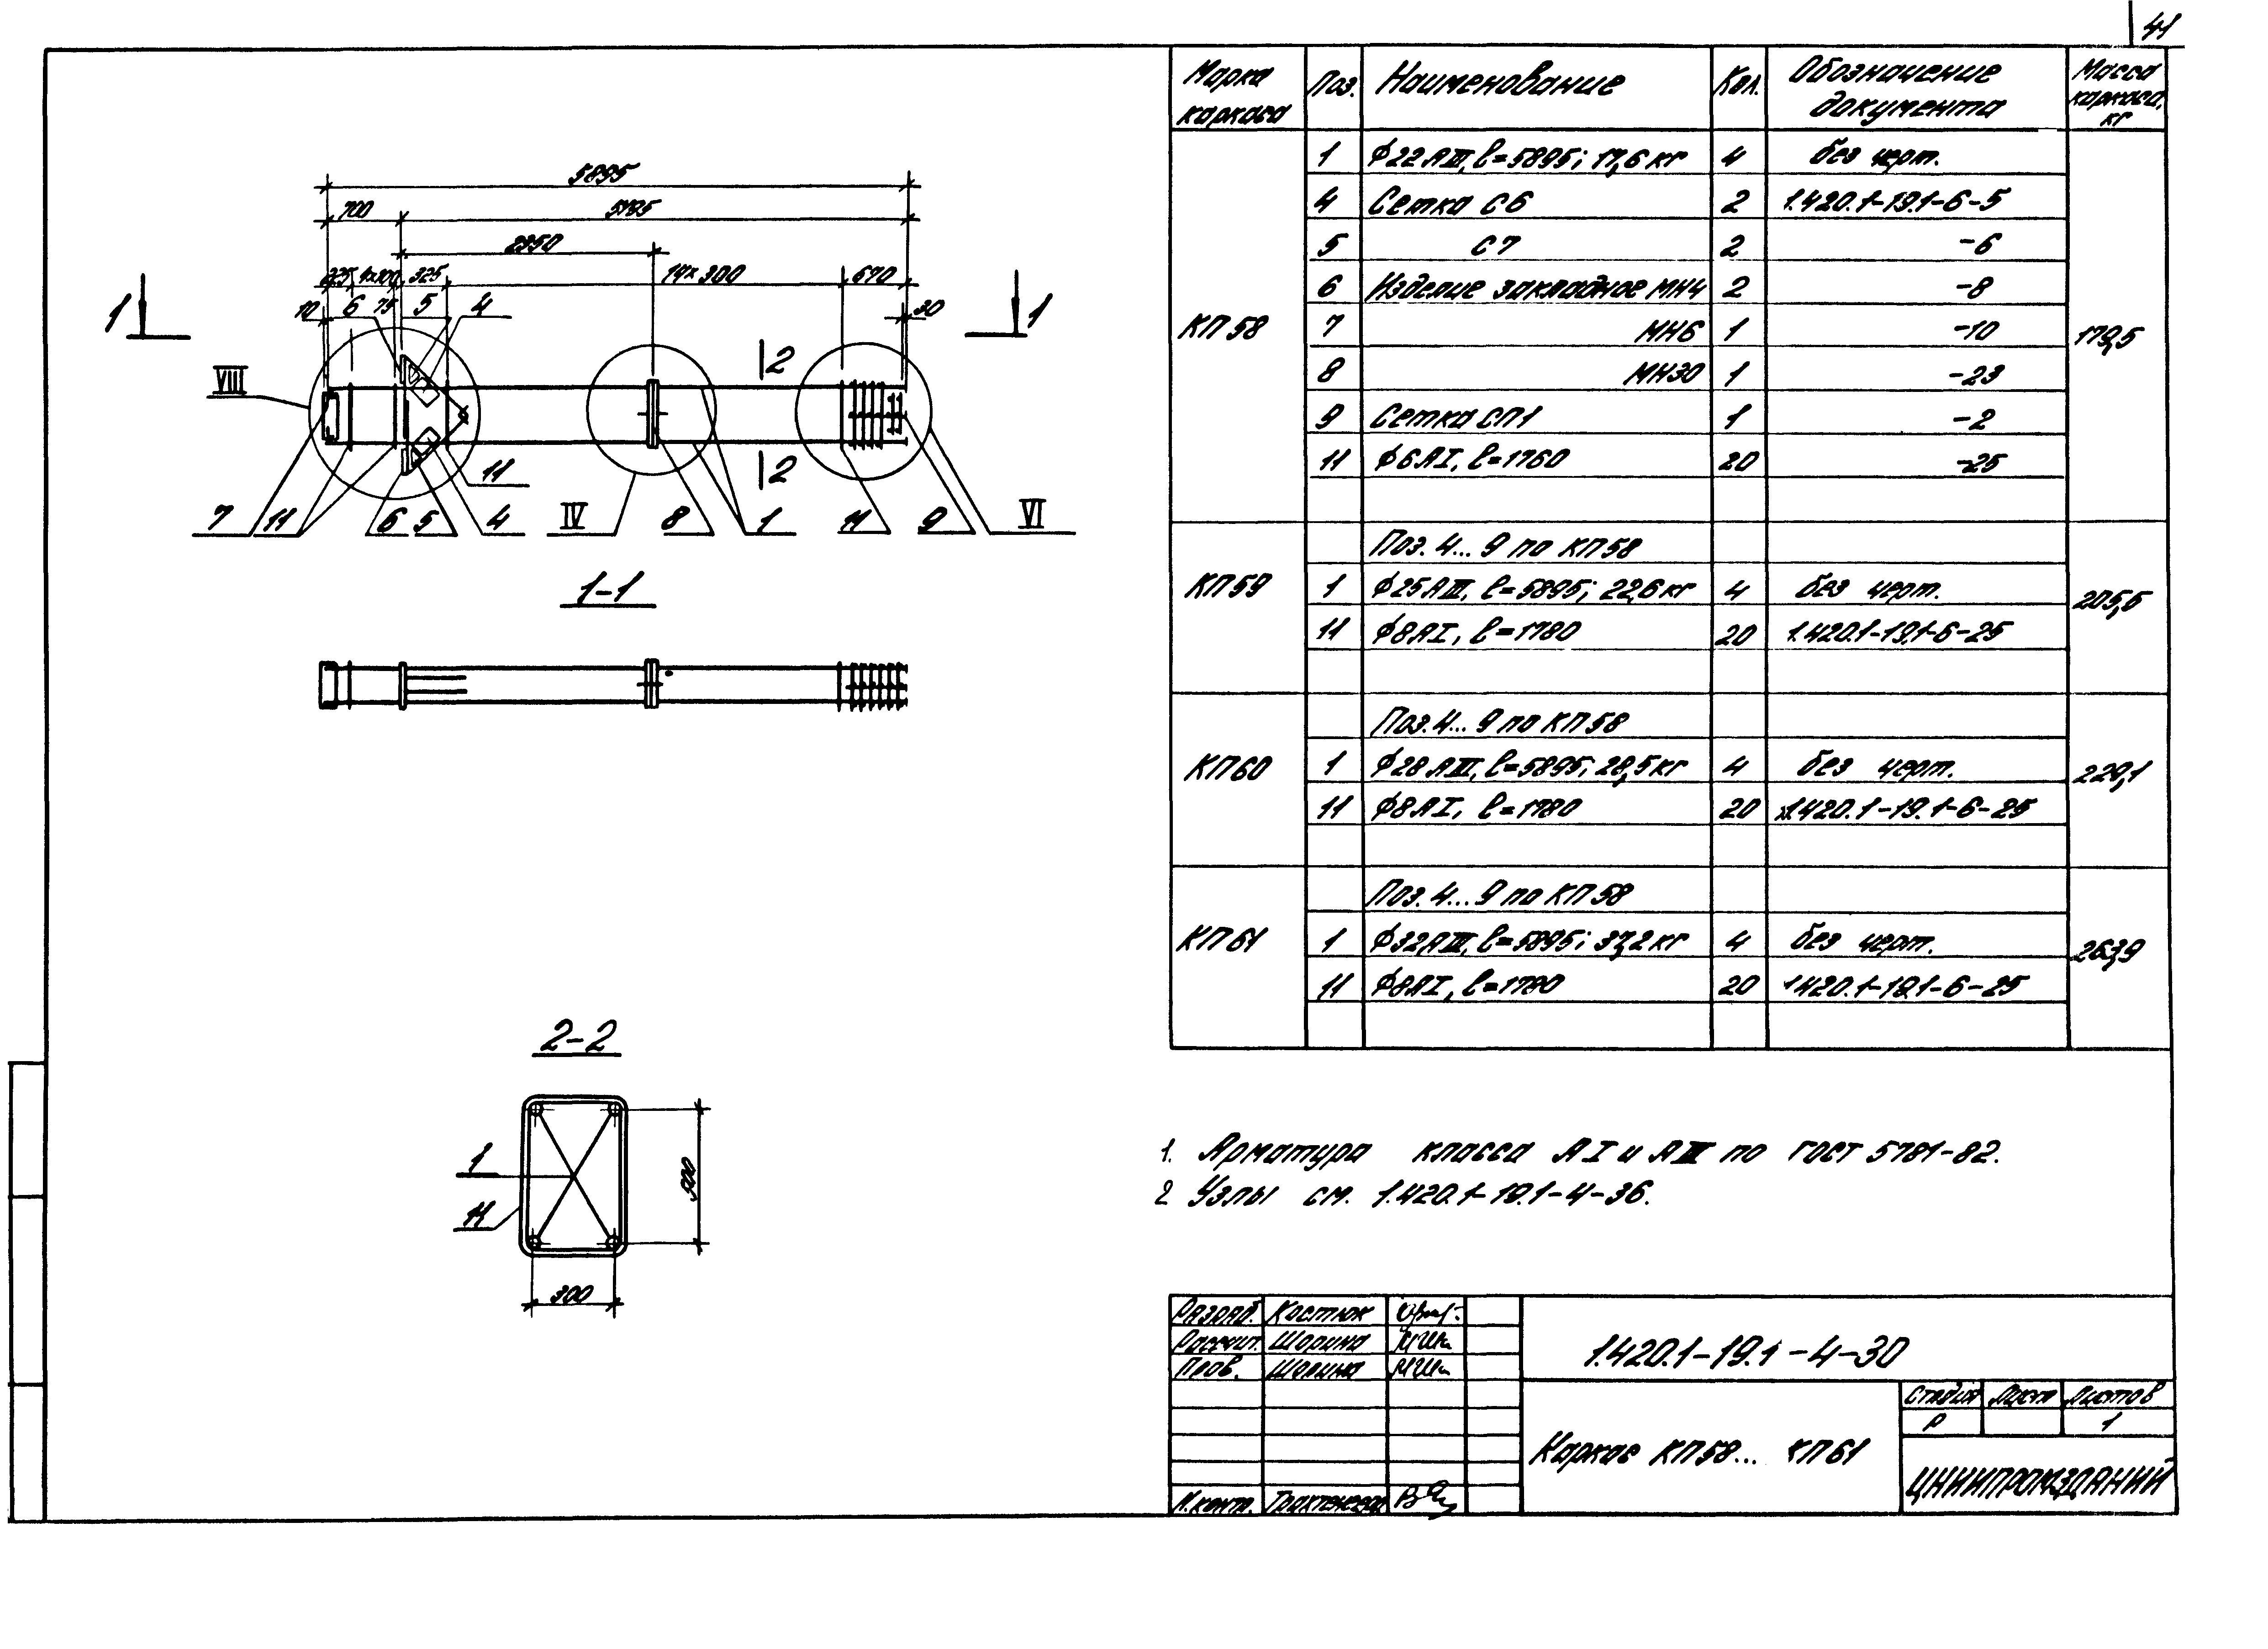 41
5895
700
5195
2950
225 4×100 325 14×300 670
10 6 75 5 4 30
1 1
2
VIII
2
11
7 11 6 5 4 IV 8 1 11 9 VI
1-1
2-2
1
11
500
300
Марка каркаса Поз. Наименование Кол. Обозначение документа Масса каркаса, кг
КП58 179,5
1 ф22АIII, l=5895; 17,6 кг 4 без черт.
4 Сетка С6 2 1.420.1-19.1-6-5
5 С7 2 -6
6 Изделие закладное МН4 2 -8
7 МН6 1 -10
8 МН30 1 -23
9 Сетка СП1 1 -2
11 ф6АI, l=1760 20 -25
КП59 205,6
Поз. 4... 9 по КП58
1 ф25АIII, l=5895; 22,6 кг 4 без черт.
11 ф8АI, l=1780 20 1.420.1-19.1-6-25
КП60 229,1
Поз. 4... 9 по КП58
1 ф28АIII, l=5895; 28,5 кг 4 без черт.
11 ф8АI, l=1780 20 1.420.1-19.1-6-25
КП61 263,9
Поз. 4... 9 по КП58
1 ф32АIII, l=5895; 37,2 кг 4 без черт.
11 ф8АI, l=1780 20 1.420.1-19.1-6-25
1. Арматура класса АI и АIII по ГОСТ 5781-82.
2 Узлы см. 1.420.1-19.1-4-36.
Разраб. Костюк
Рассчит. Шорина
Пров. Шорина
Н.контр.
1.420.1-19.1-4-30
Каркас КП58... КП61
Стадия Лист Листов
Р 1
ЦНИИПРОМЗДАНИЙ